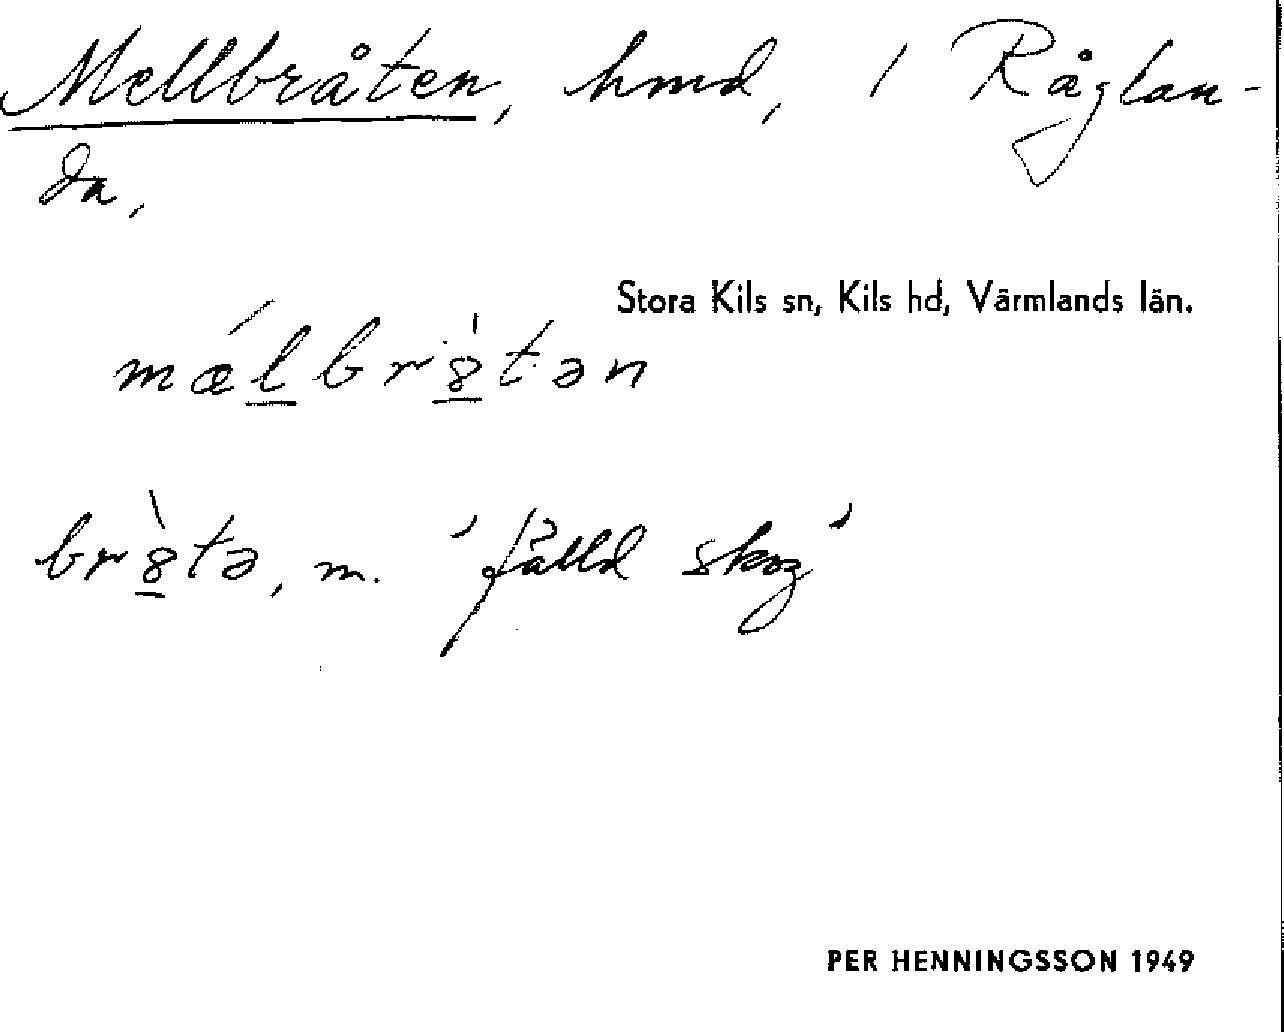 Mellbråten, hmd, 1 Råglan-
da,
Stora Kils sn, Kils hd, Värmlands län.
mǽl̲br8̲̀tən
br8̲̀tə, m. 'fälld skog'
PER HENNINGSSON 1949